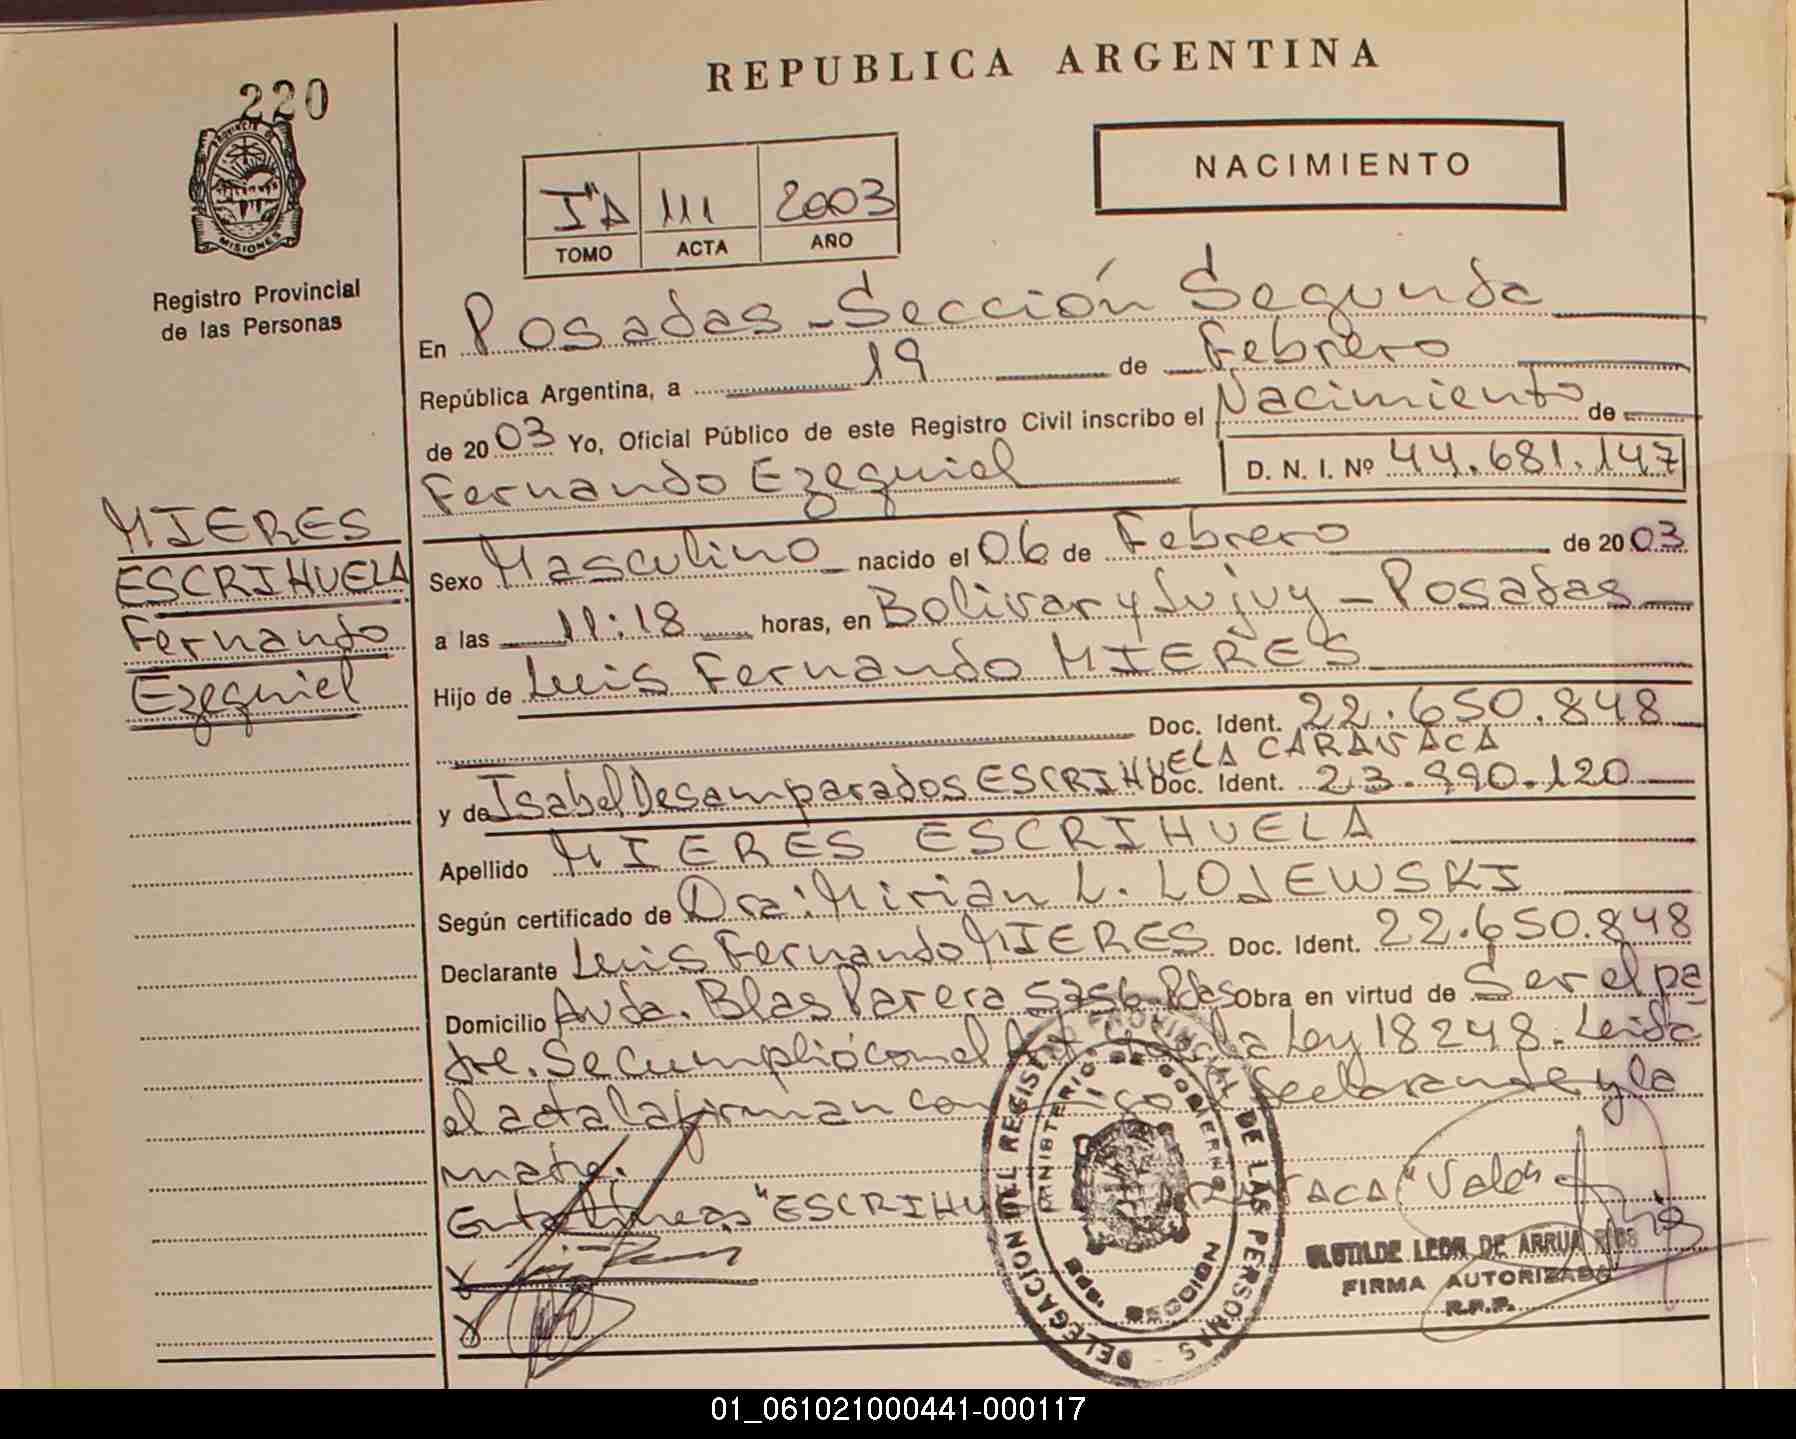 220
PROVINCIA DE
MISIONES
Registro Provincial
de las Personas
MIERES
ESCRIHUELA
Fernando
Ezequiel
REPUBLICA ARGENTINA
NACIMIENTO
IºA 111 2003
TOMO ACTA AÑO
En Posadas - Sección Segunda
República Argentina, a 19 de Febrero
de 2003 Yo, Oficial Público de este Registro Civil inscribo el Nacimiento de
Fernando Ezequiel D. N. I. Nº 44.681.147
Sexo Masculino nacido el 06 de Febrero de 2003
a las 11:18 horas, en Bolivar y Jujuy - Posadas
Hijo de Luis Fernando MIERES
Doc. Ident. 22.650.848
y de Isabel Desamparados ESCRIHUELA CARAVACA Doc. Ident. 23.990.120
Apellido MIERES ESCRIHUELA
Según certificado de Dra: Mirian L. LOJEWSKI
Declarante Luis Fernando MIERES Doc. Ident. 22.650.848
Domicilio Avda. Blas Parera 5256-Pdas Obra en virtud de Ser el pa
dre. Se cumplió con el Art la Ley 18248. Leida
el acta la firman conmigo el declarante y la
madre.
Entrelineas "ESCRIHUELA CARAVACA" Vale
DELEGACION DEL REGISTRO PROVINCIAL DE LAS PERSONAS
MINISTERIO DE GOBIERNO
PDAS. MISIONES
CLOTILDE LEON DE ARRUA RIOS
FIRMA AUTORIZADA
R.P.P.
01_061021000441-000117